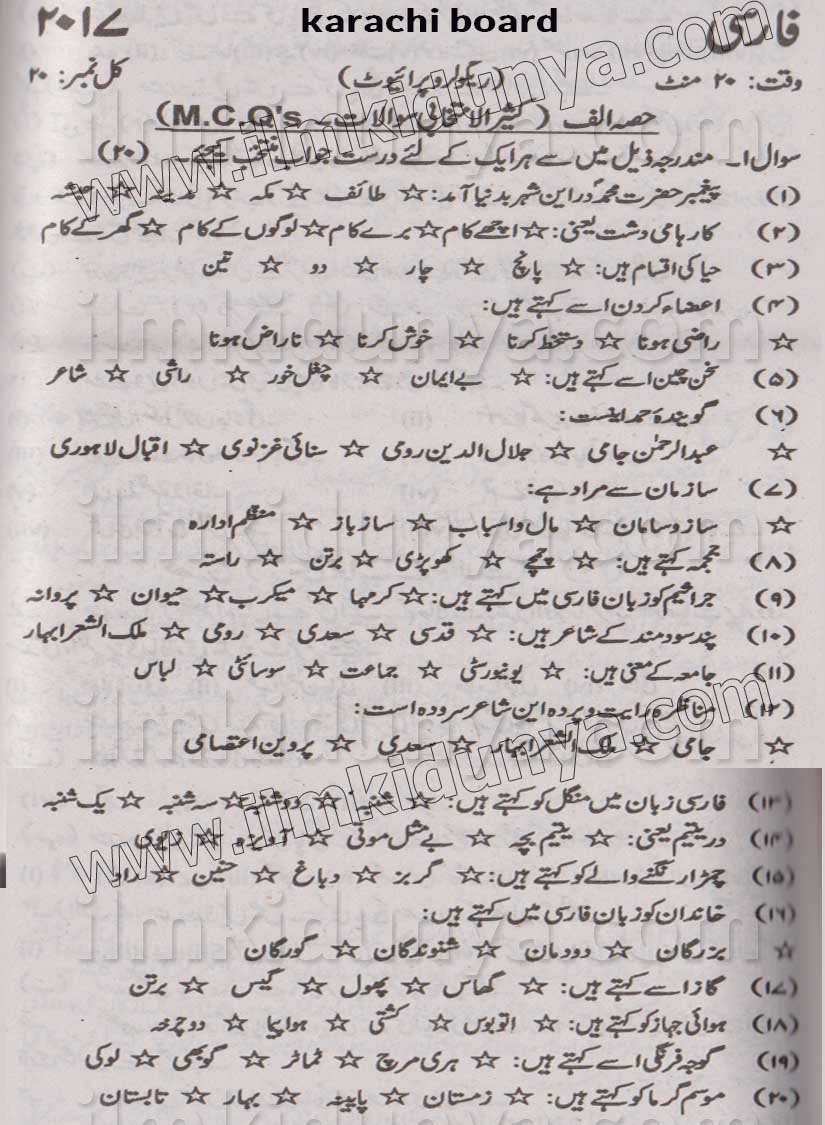 karachi board
فارسی ۲۰۱۷ء
وقت: ۲۰ منٹ (ریگولر و پرائیوٹ) کل نمبر: ۲۰
حصہ الف (کثیر الانتخابی سوالات - M.C.Q's)
سوال ۱۔ مندرجہ ذیل میں سے ہر ایک کے لئے درست جواب منتخب کیجئے۔ (۲۰)
(۱) پیغمبر حضرت محمدؐ در این شہر بدنیا آمد: ☆ طائف ☆ مکہ ☆ مدینہ ☆
(۲) کارہای دشت یعنی: ☆ اچھے کام ☆ برے کام ☆ لوگوں کے کام ☆ گھر کے کام
(۳) حیا کی اقسام ہیں: ☆ پانچ ☆ چار ☆ دو ☆ تین
(۴) اعضاء کردن اسے کہتے ہیں:
☆ راضی ہونا ☆ دستخط کرنا ☆ خوش کرنا ☆ ناراض ہونا
(۵) سخن چین اسے کہتے ہیں: ☆ بے ایمان ☆ چغل خور ☆ راشی ☆ شاعر
(۶) گویندۂ حمد اینست:
☆ عبدالرحمٰن جامی ☆ جلال الدین رومی ☆ سنائی غزنوی ☆ اقبال لاہوری
(۷) سازمان سے مراد ہے:
☆ ساز و سامان ☆ مال و اسباب ☆ ساز باز ☆ منظم ادارہ
(۸) جمجمہ کہتے ہیں: ☆ چمچے ☆ کھوپڑی ☆ برتن ☆ راستہ
(۹) جراثیم کو زبان فارسی میں کہتے ہیں: ☆ کرمہا ☆ میکرب ☆ حیوان ☆ پروانہ
(۱۰) پند سودمند کے شاعر ہیں: ☆ قدسی ☆ سعدی ☆ رومی ☆ ملک الشعرا بہار
(۱۱) جامعہ کے معنی ہیں: ☆ یونیورسٹی ☆ جماعت ☆ سوسائٹی ☆ لباس
(۱۲) مناظرہ رایت و پردہ این شاعر سرودہ است:
☆ جامی ☆ ملک الشعرا بہار ☆ سعدی ☆ پروین اعتصامی
(۱۳) فارسی زبان میں منگل کو کہتے ہیں: ☆ شنبہ ☆ دو شنبہ ☆ سہ شنبہ ☆ یک شنبہ
(۱۴) در یتیم یعنی: ☆ یتیم بچہ ☆ بے مثل موتی ☆ آویزہ ☆
(۱۵) چمڑا رنگنے والے کو کہتے ہیں: ☆ گربز ☆ دباغ ☆ حنین ☆ راد
(۱۶) خاندان کو زبان فارسی میں کہتے ہیں:
☆ بزرگان ☆ دودمان ☆ شنوندگان ☆ گورگان
(۱۷) گاز اسے کہتے ہیں: ☆ گھاس ☆ پھول ☆ گیس ☆ برتن
(۱۸) ہوائی جہاز کو کہتے ہیں: ☆ اتوبوس ☆ کشتی ☆ ہواپیما ☆ دوچرخہ
(۱۹) گوجہ فرنگی اسے کہتے ہیں: ☆ ہری مرچ ☆ ٹماٹر ☆ گوبھی ☆ لوکی
(۲۰) موسم گرما کو کہتے ہیں: ☆ زمستان ☆ پاییزہ ☆ بہار ☆ تابستان
www.ilmkidunya.com
ilmkidunya.com
ilmkidunya.com
ilmkidunya.com
www.ilmkidunya.com
ilmkidunya.com
ilmkidunya.com
ilmkidunya.com